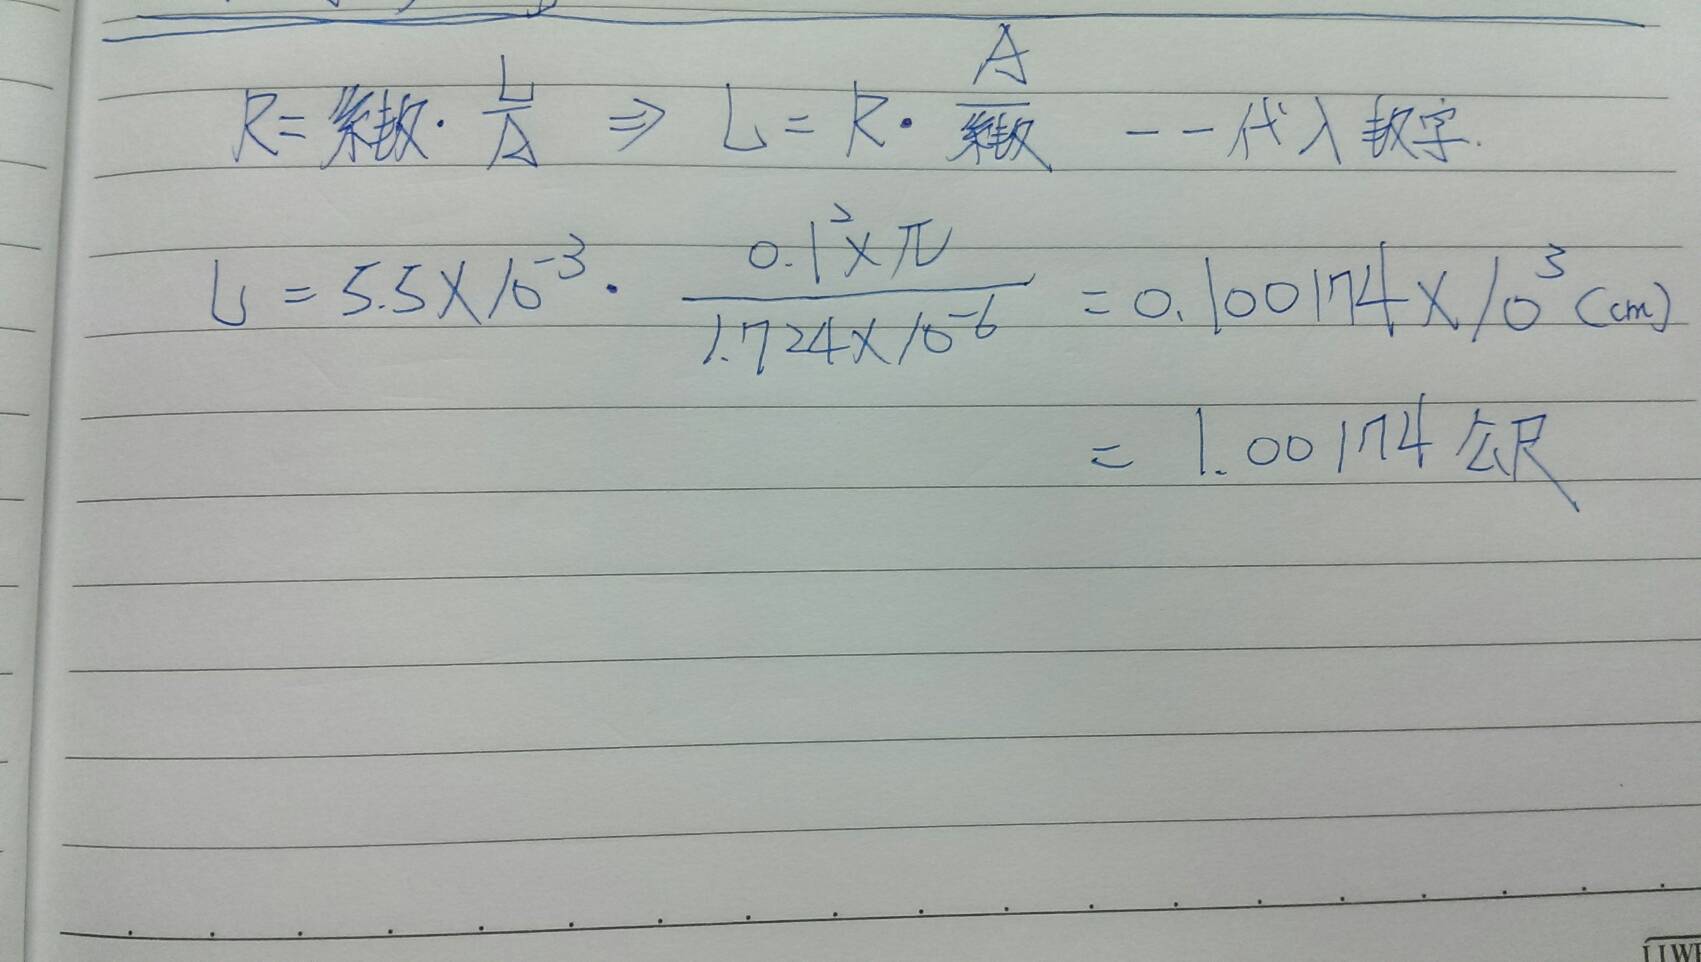 R = 係数 · L/A ⇒ L = R · A/係数 -- 代入数字.
L = 5.5×10⁻³ · 0.1²×π / 1.724×10⁻⁶ = 0.100174×10³ (cm)
= 1.00174 公尺